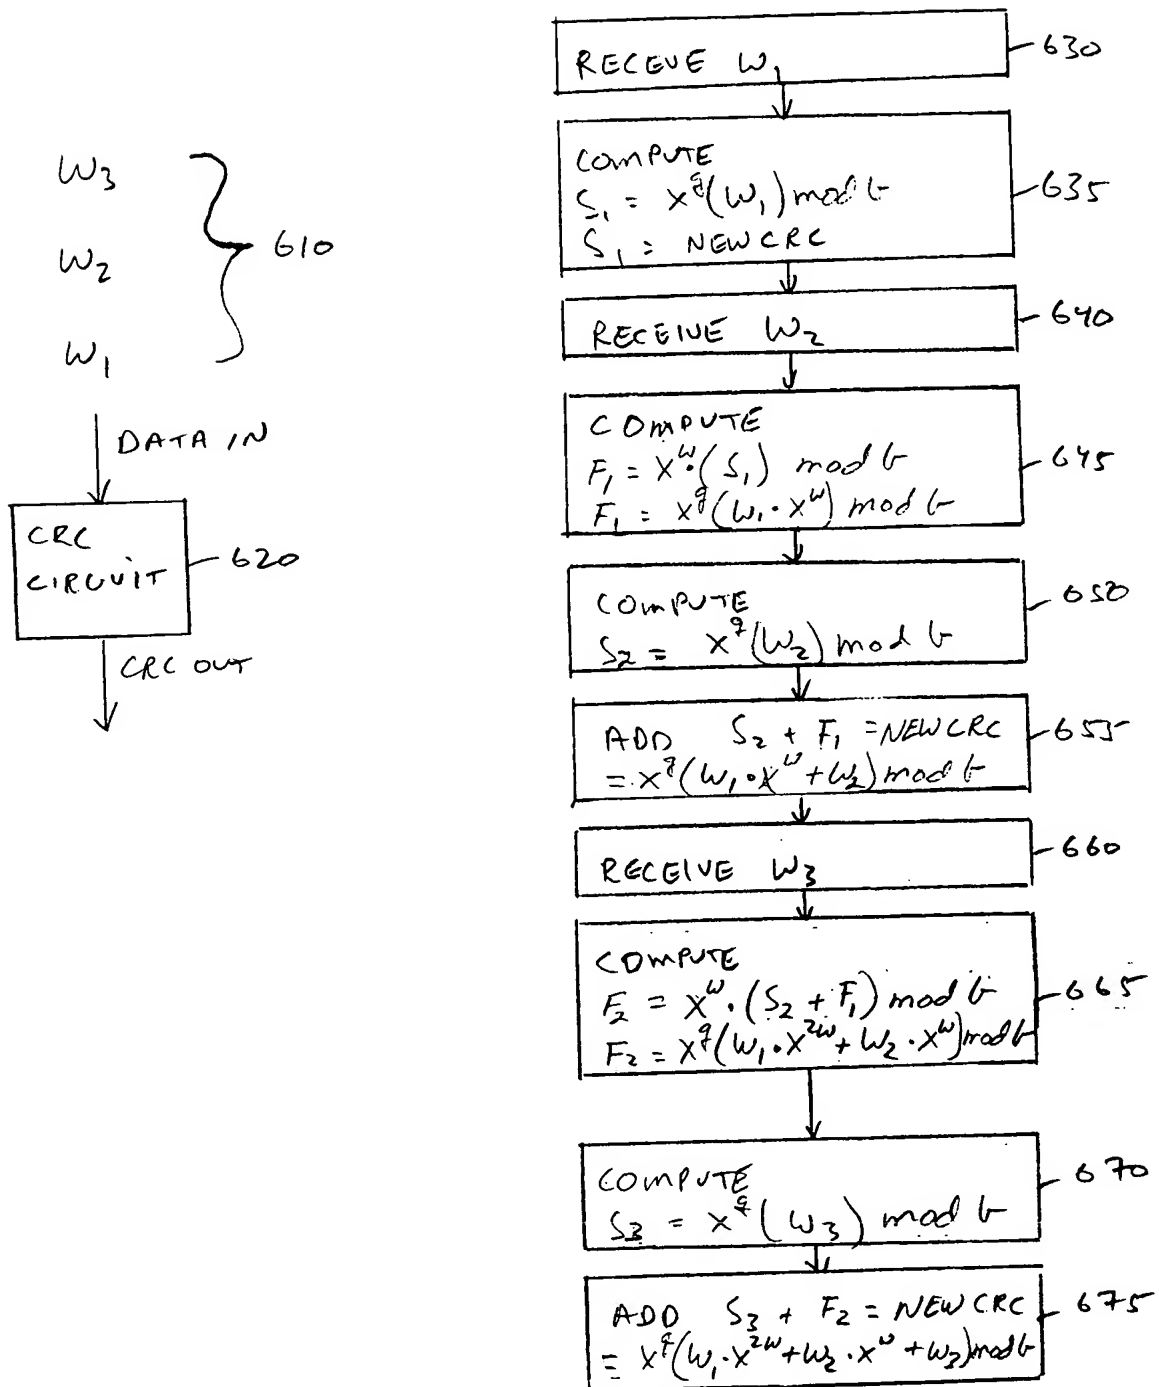 W3
W2
W1
610
DATA IN
CRC
CIRCUIT
620
CRC OUT
RECEIVE W1
630
COMPUTE
S1 = X^g(W1) mod G
S1 = NEW CRC
635
RECEIVE W2
640
COMPUTE
F1 = X^W·(S1) mod G
F1 = X^g(W1·X^W) mod G
645
COMPUTE
S2 = X^g(W2) mod G
650
ADD S2 + F1 = NEW CRC
= X^g(W1·X^W + W2) mod G
655
RECEIVE W3
660
COMPUTE
F2 = X^W·(S2 + F1) mod G
F2 = X^g(W1·X^2W + W2·X^W) mod G
665
COMPUTE
S3 = X^g(W3) mod G
670
ADD S3 + F2 = NEW CRC
= X^g(W1·X^2W + W2·X^W + W3) mod G
675